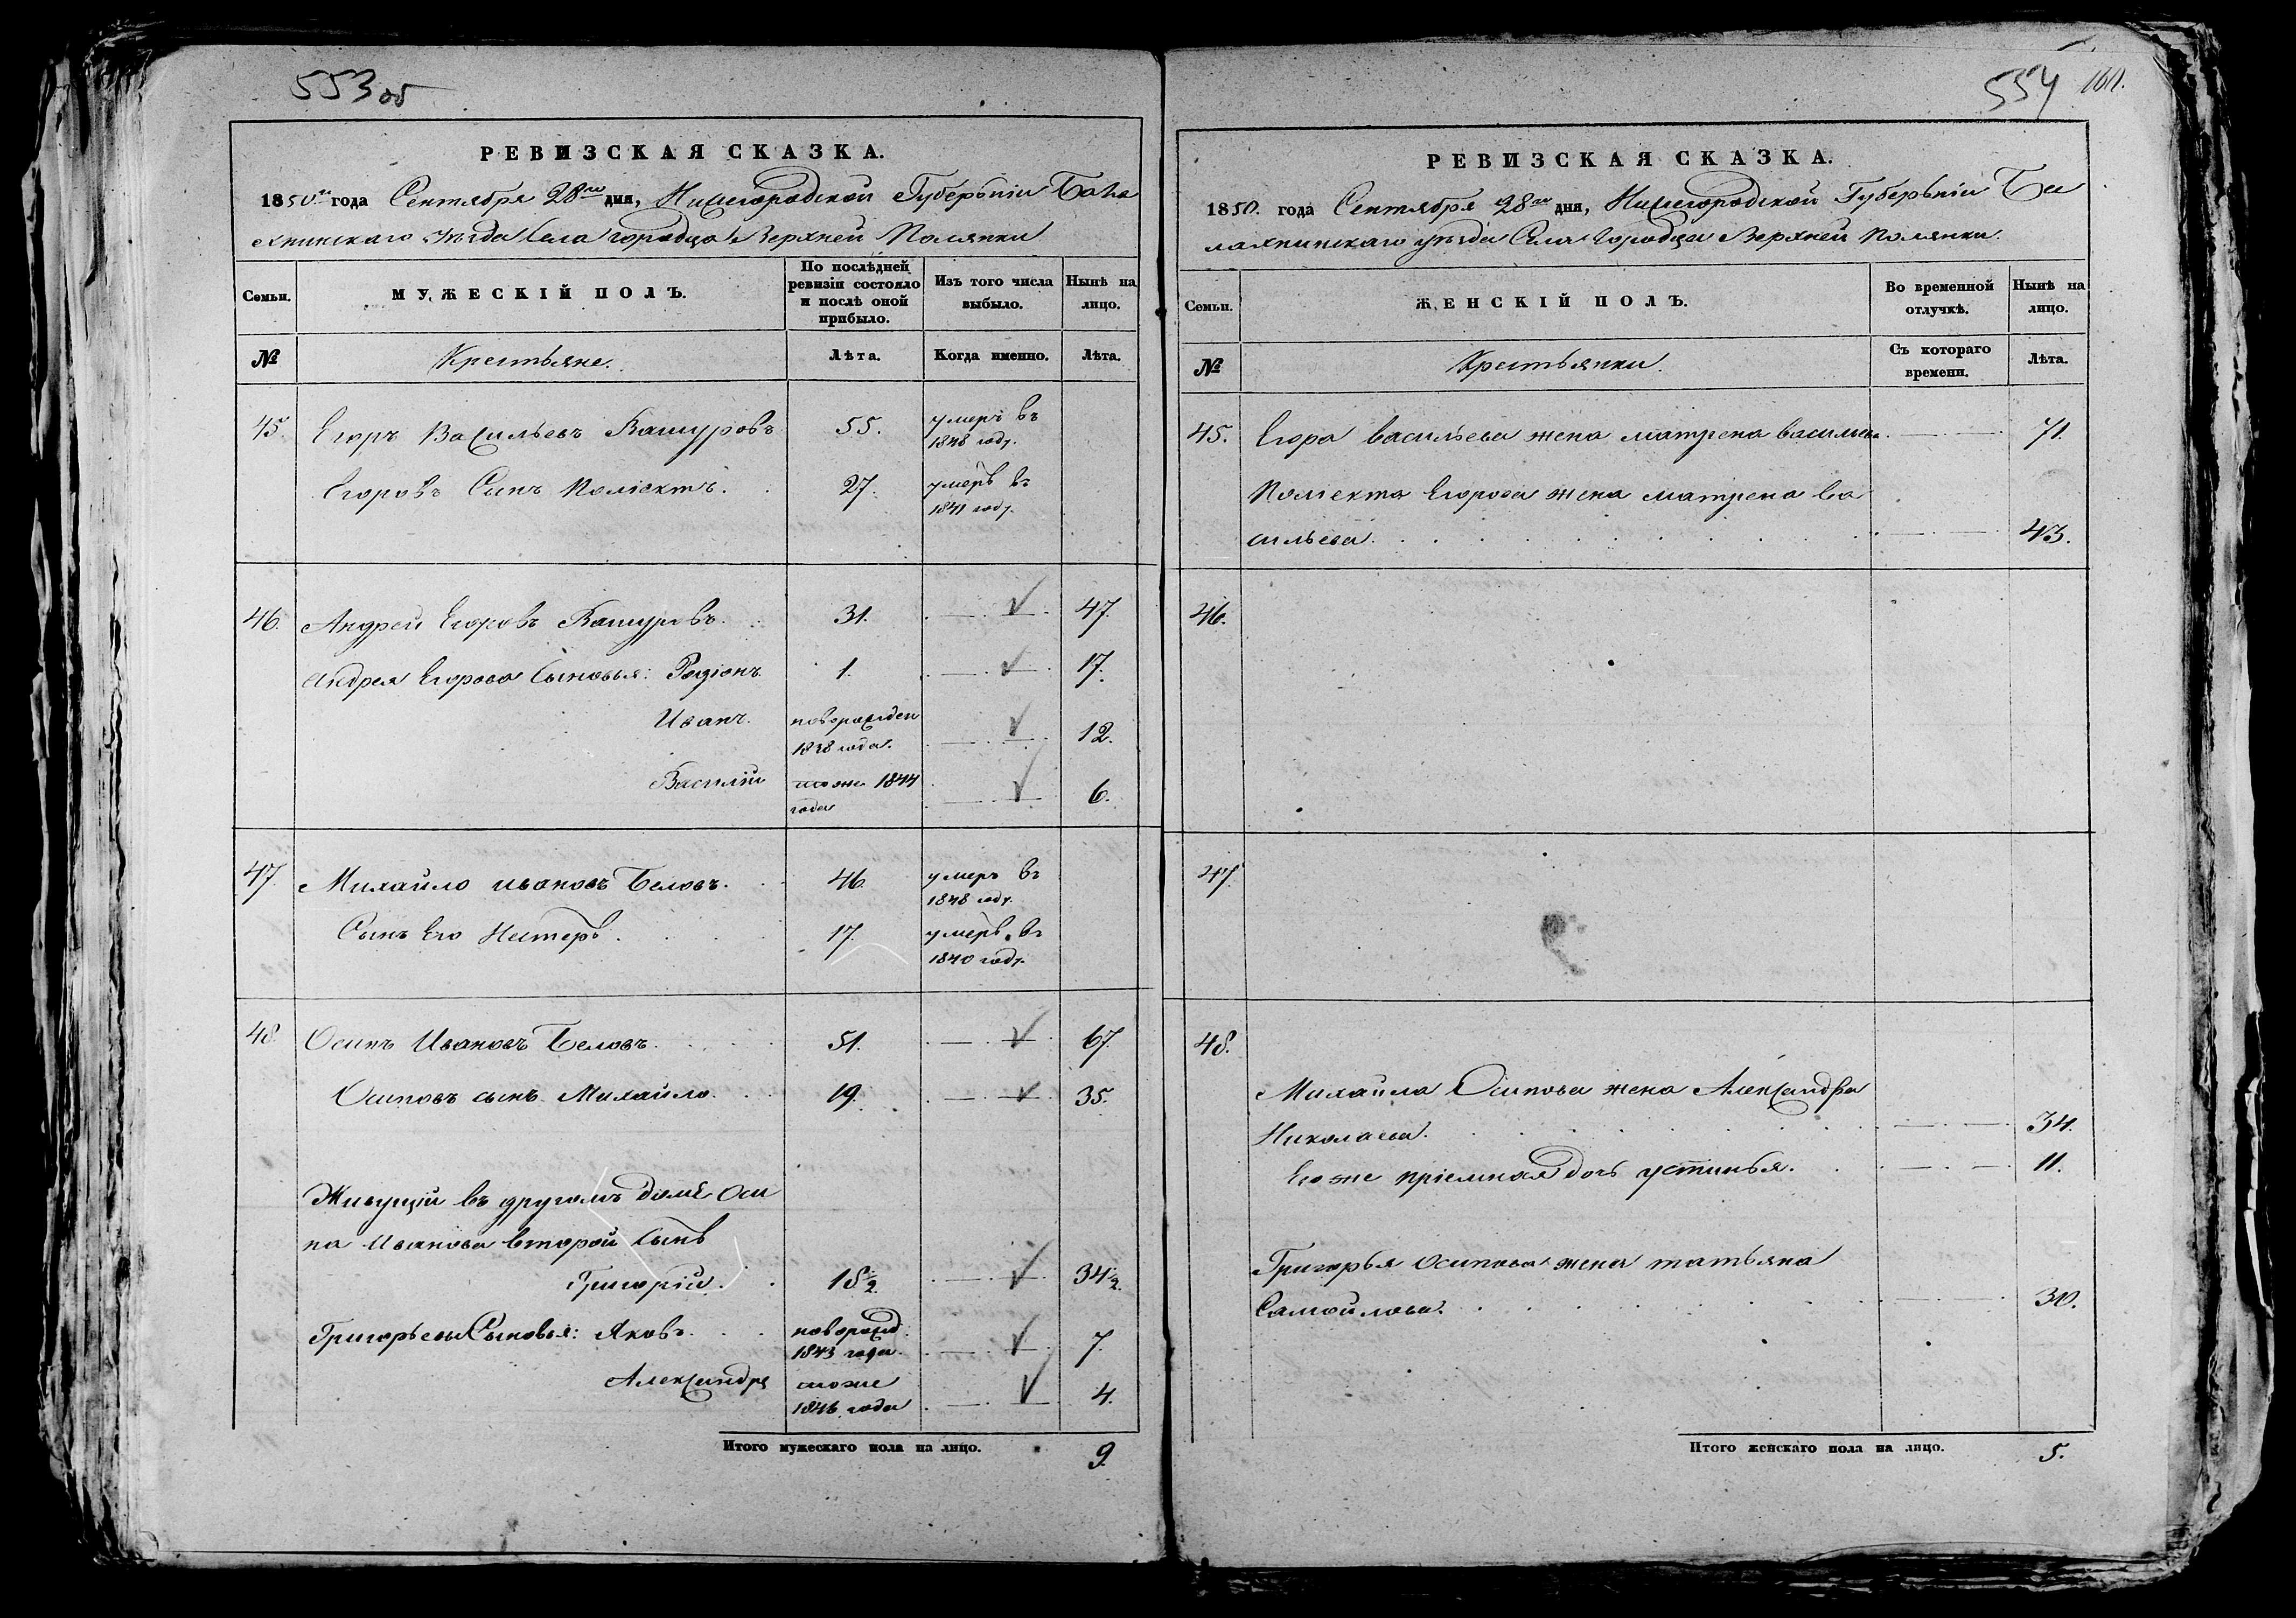 553 об
РЕВИЗСКАЯ СКАЗКА.
1850го года Сентября 28го дня, Нижегородской Губерьніи Бала
хнинскаго уѣзда Села городца Верхней Полянки
Семьи. МУЖЕСКІЙ ПОЛЪ. По послѣдней ревизіи состояло и послѣ оной прибыло. Изъ того числа выбыло. Нынѣ на лицо.
№ Крестьяне. Лѣта. Когда именно. Лѣта.
45. Егоръ Васильевъ 55. умеръ въ 1848 году.
Егоровъ Сынъ Поліектъ. 27. умеръ въ 1841 году.
46. Андрей Егоровъ 31. 47.
Андрея Егорова Сыновья: Родіонъ 1. 17.
Иванъ. новорожден 1838 года. 12.
Василий тоже 1844 года 6.
47. Михайло ивановъ Беловъ. 46. умеръ въ 1848 году.
Сынъ Его Нестеръ. 17. умеръ въ 1840 году.
48. Осипъ Ивановъ Беловъ. 51. 67.
Осиповъ сынъ Михайло. 19. 35.
Живущій въ другомъ домѣ Оси
па Иванова второй сынъ
Григорій. 18½. 34½.
Григорьевы Сыновья: Яковъ. новорожд. 1843 года. 7.
Александръ тоже 1846 года 4.
Итого мужескаго пола на лицо. 9.
554 160.
РЕВИЗСКАЯ СКАЗКА.
1850. года Сентября 28го дня, Нижегородской Губерьніи Ба
лахнинскаго уѣзда Села Городца Верхней Полянки.
Семьи. ЖЕНСКІЙ ПОЛЪ. Во временной отлучкѣ. Нынѣ на лицо.
№ Крестьянки. Съ котораго времени. Лѣта.
45. Егора васильева жена матрена васильева 71.
Поліекта Егорова жена матрена Ва
сильева. 43.
46.
47.
48.
Михайла Осипова жена Александра
Николаева. 34.
Его же пріемная дочь устинья. 11.
Григорья Осипова жена татьяна
Самойлова. 30.
Итого женскаго пола на лицо. 5.